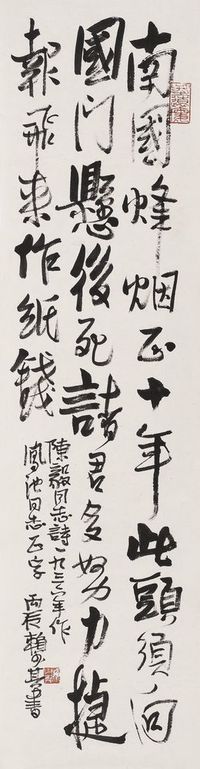 南國烽烟正十年此頭須向
國门懸後死諸君多努力捷
報飛来作纸錢
陳毅同志詩一九三六年作
鳳池同志正字 丙辰賴少其書